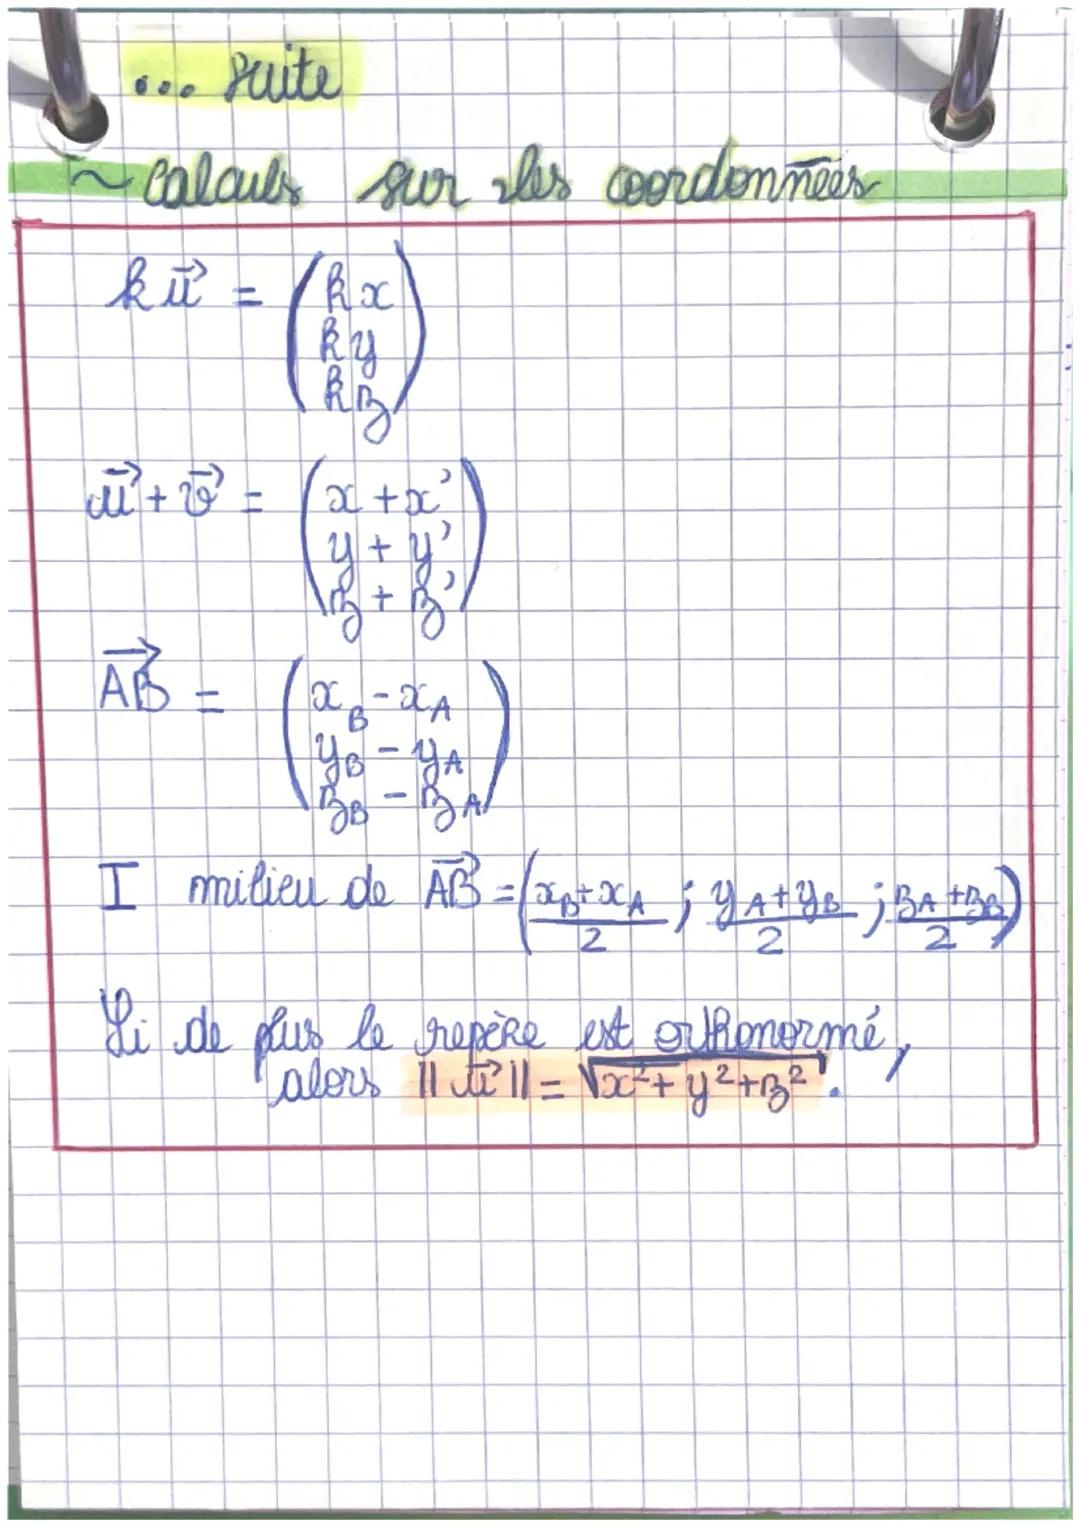 ... suite
~ calculs sur les coordonnées
k u⃗ = (kx
ky
kz)
u⃗ + v⃗ = (x + x'
y + y'
z + z')
AB⃗ = (x_B - x_A
y_B - y_A
z_B - z_A)
I milieu de AB⃗ = ((x_B + x_A)/2 ; (y_A + y_B)/2 ; (z_A + z_B)/2)
Si de plus le repère est orthonormé,
alors || u⃗ || = √(x² + y² + z²).